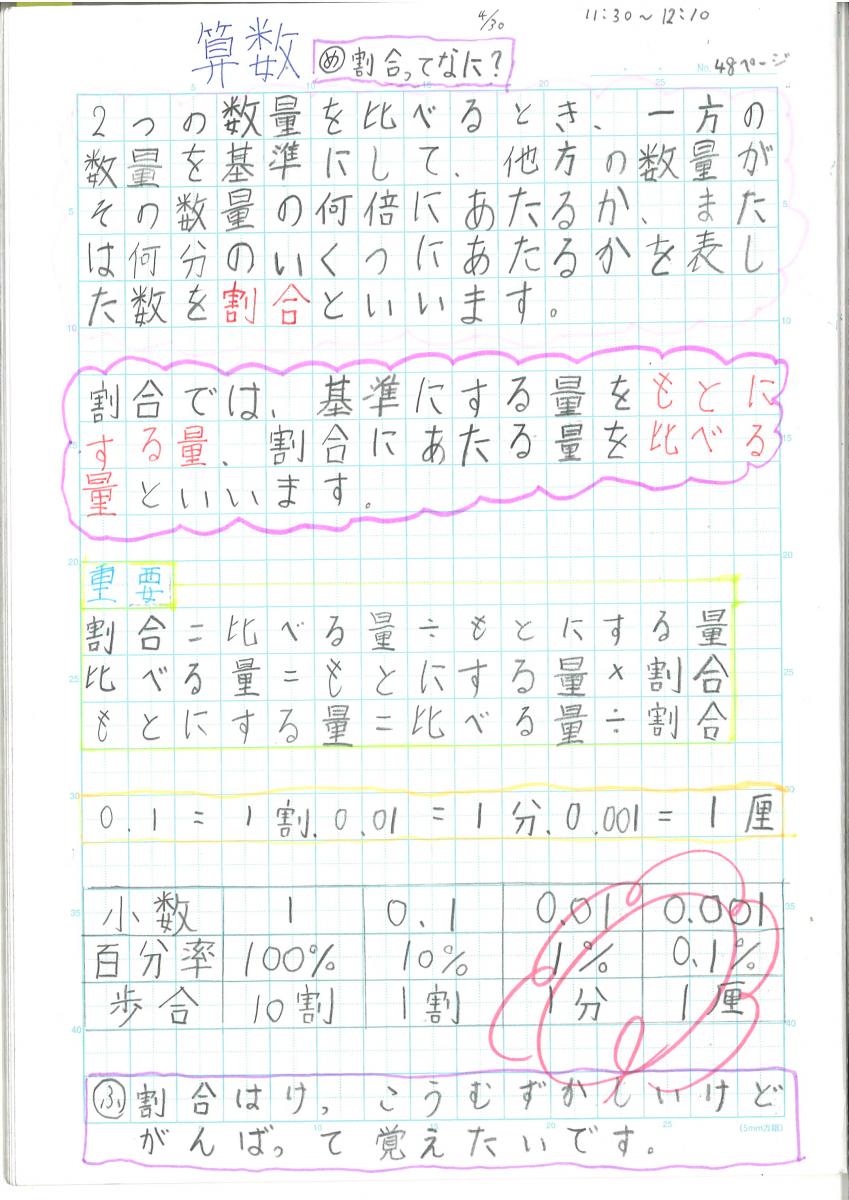 4/30
11:30～12:10
算数
め 割合ってなに?
No. 48ページ
2つの数量を比べるとき、一方の
数量を基準にして、他方の数量が
その数量の何倍にあたるか、また
は何分のいくつにあたるかを表し
た数を割合といいます。
割合では、基準にする量をもとに
する量、割合にあたる量を比べる
量といいます。
重要
割合=比べる量÷もとにする量
比べる量=もとにする量×割合
もとにする量=比べる量÷割合
0.1=1割、0.01=1分、0.001=1厘
小数 1 0.1 0.01 0.001
百分率 100% 10% 1% 0.1%
歩合 10割 1割 1分 1厘
ふ 割合はけっこうむずかしいけど
がんばって覚えたいです。
(5mm方眼)